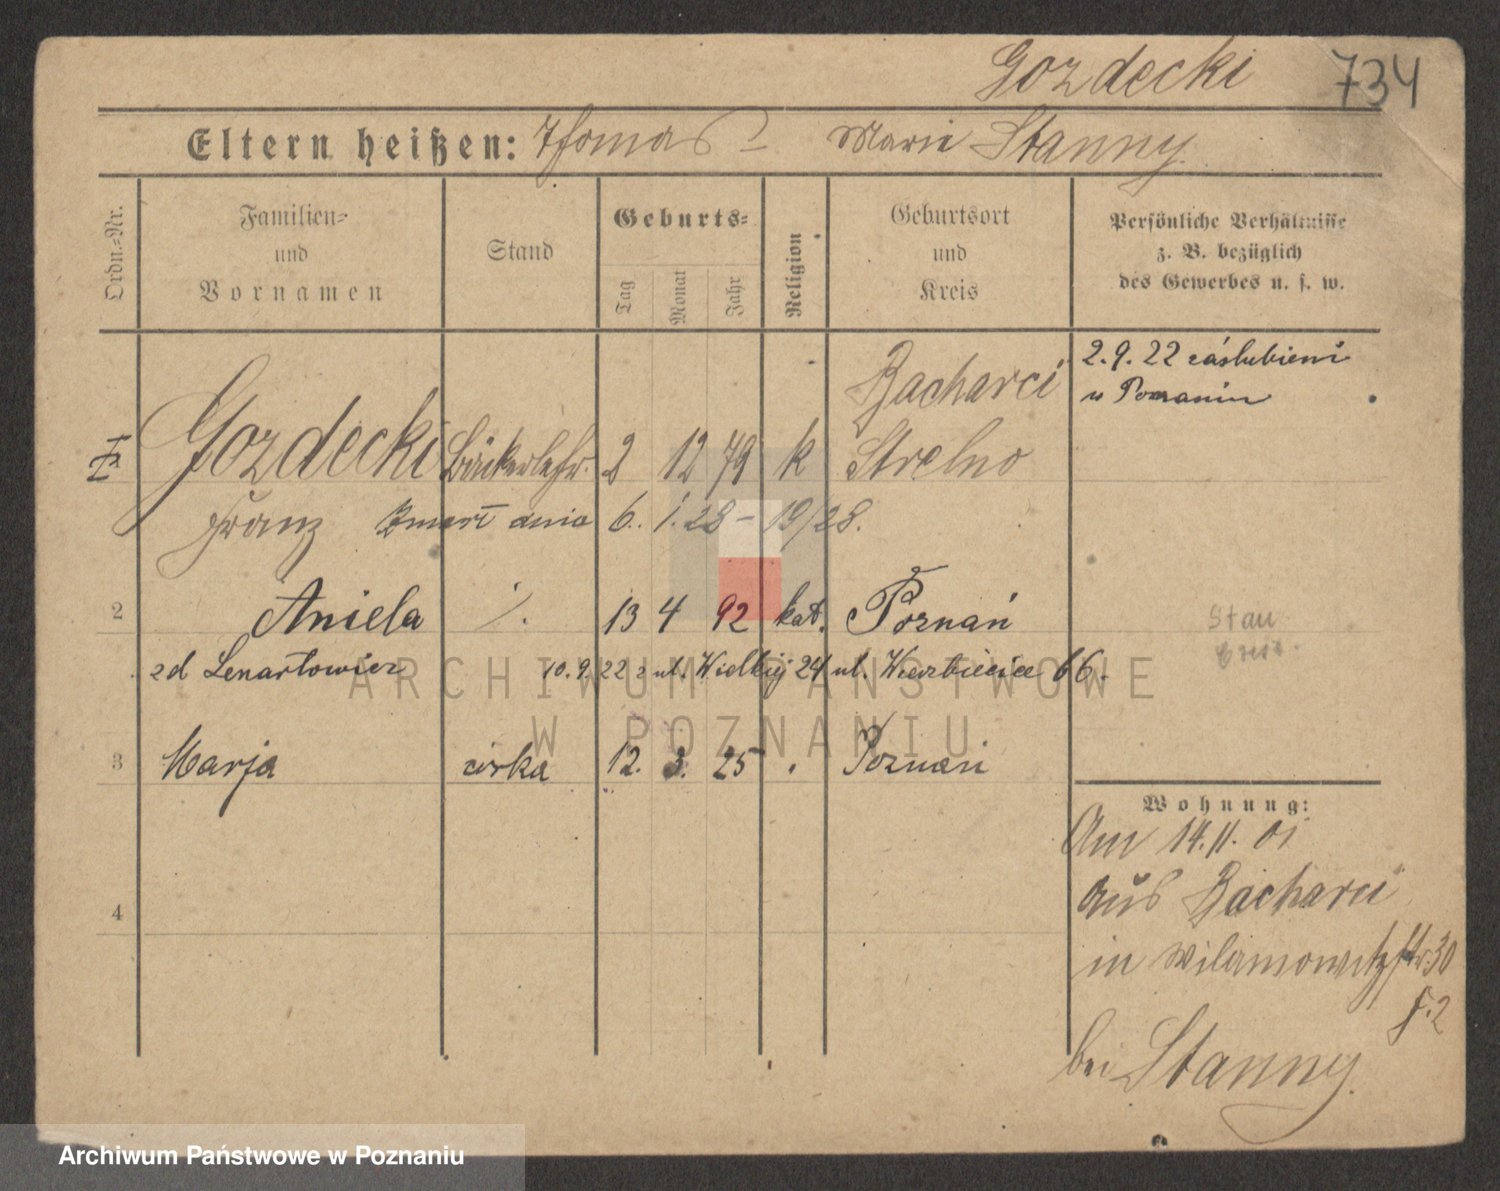 Gozdecki 734
Eltern heißen: Thomas Marie Stanny
Ordn.-Nr.
Familien-
und
Vornamen
Stand
Geburts-
Tag
Monat
Jahr
Religion
Geburtsort
und
Kreis
Persönliche Verhältnisse
z. B. bezüglich
des Gewerbes u. s. w.
2.9.22 záslubieni
w Poznaniu
Gozdecki Bäckerlehr. 2 12 79 k Bacharci
Strelno
Franz Zmarł dnia 6. 1. 28 - 19/28.
2 Aniela ./. 13 4 92 kat. Poznań
zd Lenartowicz 10.9.22 z ul. Wielkiej 24 ul. Wierzbięcice 66.
Stan
3 Marja córka 12. 3. 25 Poznań
4
Wohnung:
Am 14.11.01
aus Bacharci
in Wilamowitzstr. 30
bei Stanny.
ARCHIWUM PAŃSTWOWE
W POZNANIU
Archiwum Państwowe w Poznaniu